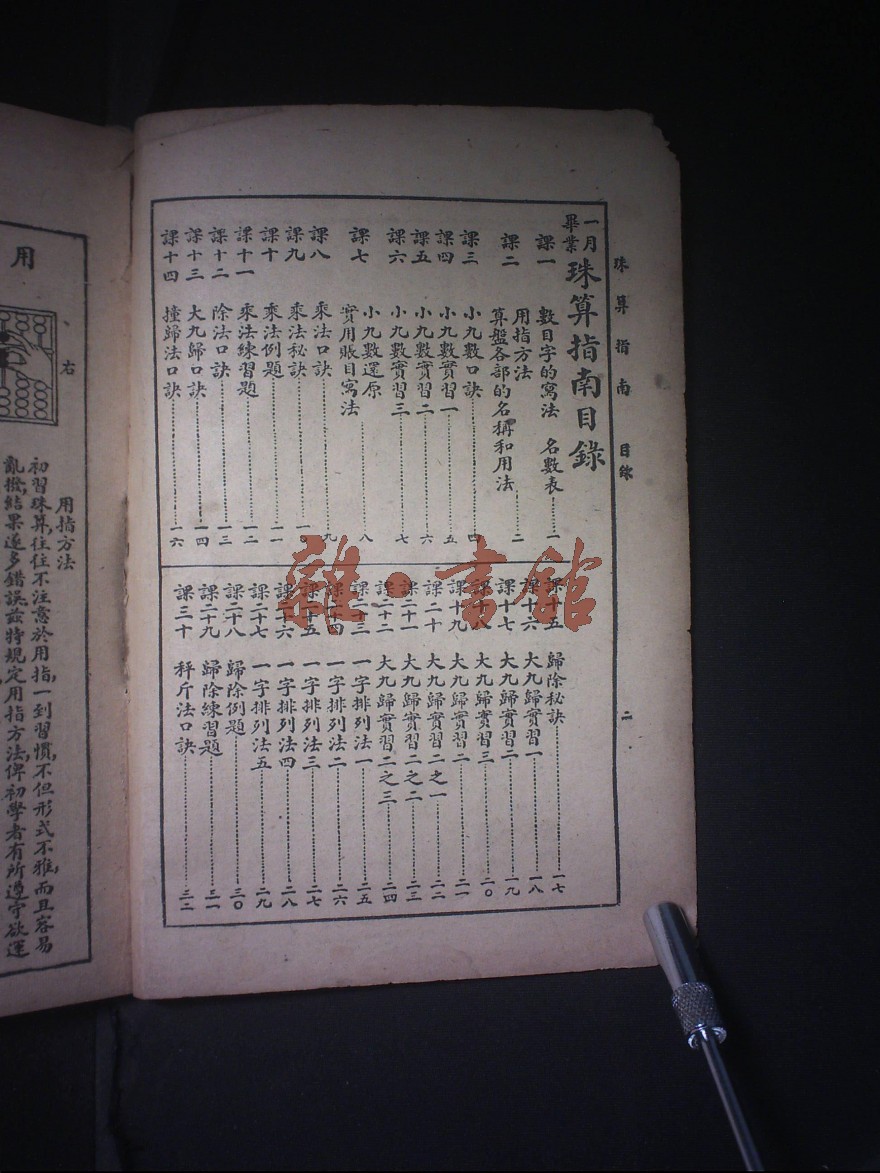 珠算指南 目錄 二
一月畢業 珠算指南目錄
課一 數目字的寫法 名數表……一
用指方法……二
課二 算盤各部的名稱和用法
課三 小九數口訣……四
課四 小九數實習一……五
課五 小九數實習二……六
課六 小九數實習三……七
小九數還原……八
課七 實用賬目寫法
課八 乘法口訣……九
課九 乘法秘訣……一
課十 乘法例題……一一
課十一 乘法練習題……一二
課十二 除法口訣……一三
課十三 大九歸口訣……一四
課十四 撞歸法口訣……一六
課十五 歸除秘訣……一七
課十六 大九歸實習一……一八
課十七 大九歸實習二……一九
課十八 大九歸實習三……二〇
課十九 大九歸實習二……二一
課二十 大九歸實習二之一……二二
課二十一 大九歸實習二之二……二三
課二十二 大九歸實習二之三……二四
課二十三 一字排列法一……二五
課二十四 一字排列法二……二六
課二十五 一字排列法三……二七
課二十六 一字排列法四……二八
課二十七 一字排列法五……二九
課二十八 歸除例題……三〇
課二十九 歸除練習題……三一
課三十 秤斤法口訣……三二
雜·書館
用
右
用指方法
初習珠算,往往不注意於用指,一到習慣,不但形式不雅,而且容易
亂撥,結果遂多錯誤,茲特規定用指方法,俾初學者有所遵守,欲運